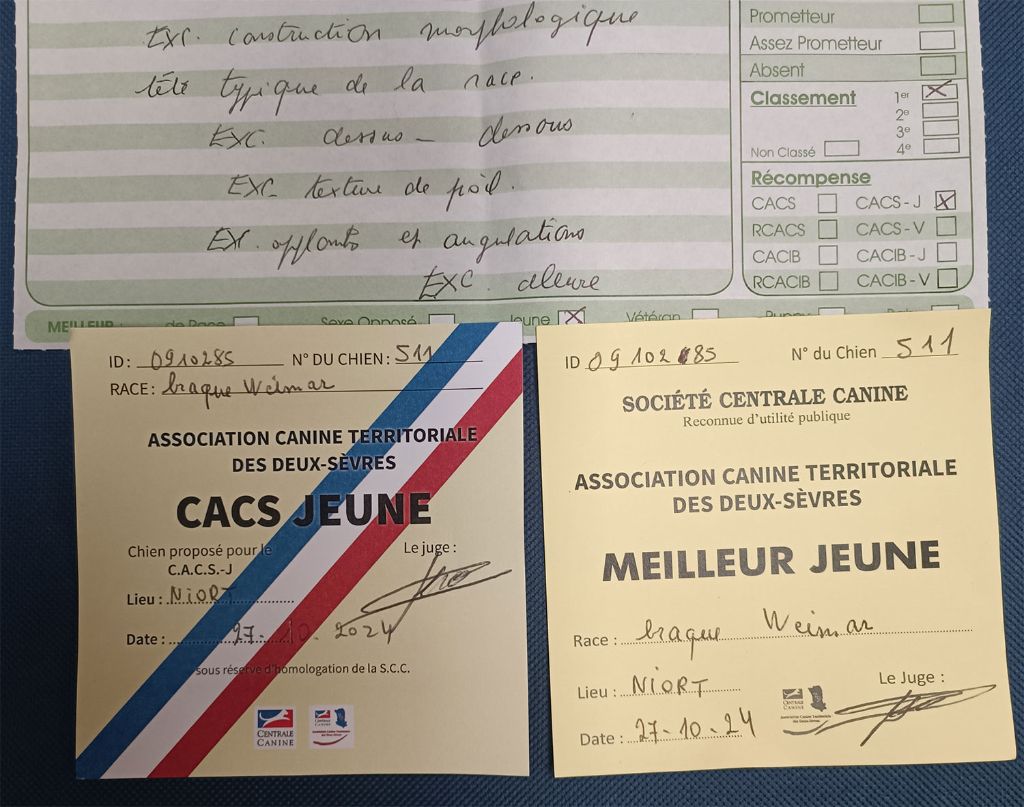 EXC. construction morphologique
tété typique de la race.
EXC. dessus - dessous
EXC texture de poil.
EX. applombs et angulations
EXC. aleure
Prometteur
Assez Prometteur
Absent
Classement 1er
2e
3e
Non Classé 4e
Récompense
CACS CACS - J
RCACS CACS - V
CACIB CACIB - J
RCACIB CACIB - V
MEILLEUR : de Race Sexe Opposé Jeune Vétéran Puppy
ID : 0910285 N° DU CHIEN : 511
RACE : braque Weimar
ASSOCIATION CANINE TERRITORIALE
DES DEUX-SÈVRES
CACS JEUNE
Chien proposé pour le
C.A.C.S.-J
Le juge :
Lieu : NIORT
Date : 27-10-2024
sous réserve d'homologation de la S.C.C.
CENTRALE
CANINE
ID 0910285 N° du Chien 511
SOCIÉTÉ CENTRALE CANINE
Reconnue d'utilité publique
ASSOCIATION CANINE TERRITORIALE
DES DEUX-SÈVRES
MEILLEUR JEUNE
Race : braque Weimar
Lieu : NIORT
Le Juge :
Date : 27-10-24
CENTRALE
CANINE